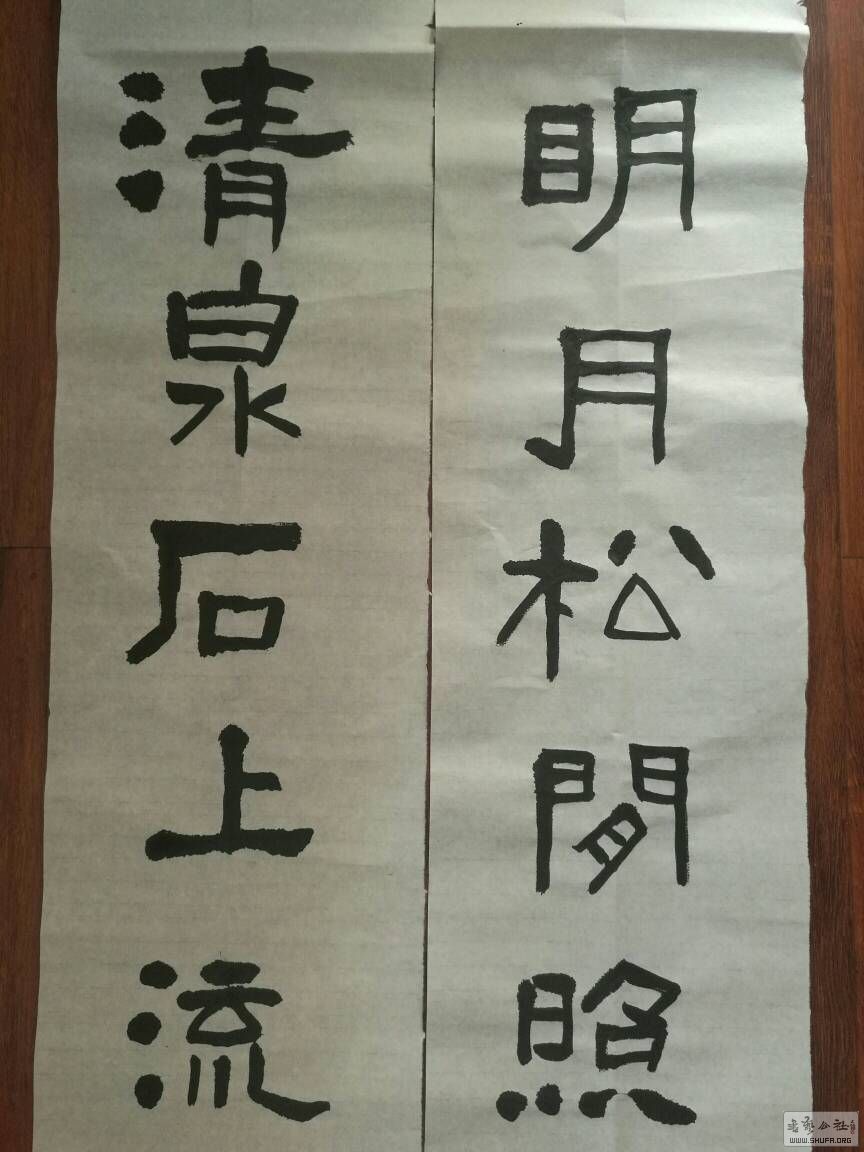 明月松閒照
清泉石上流
书艺公社
WWW.SHUFA.ORG